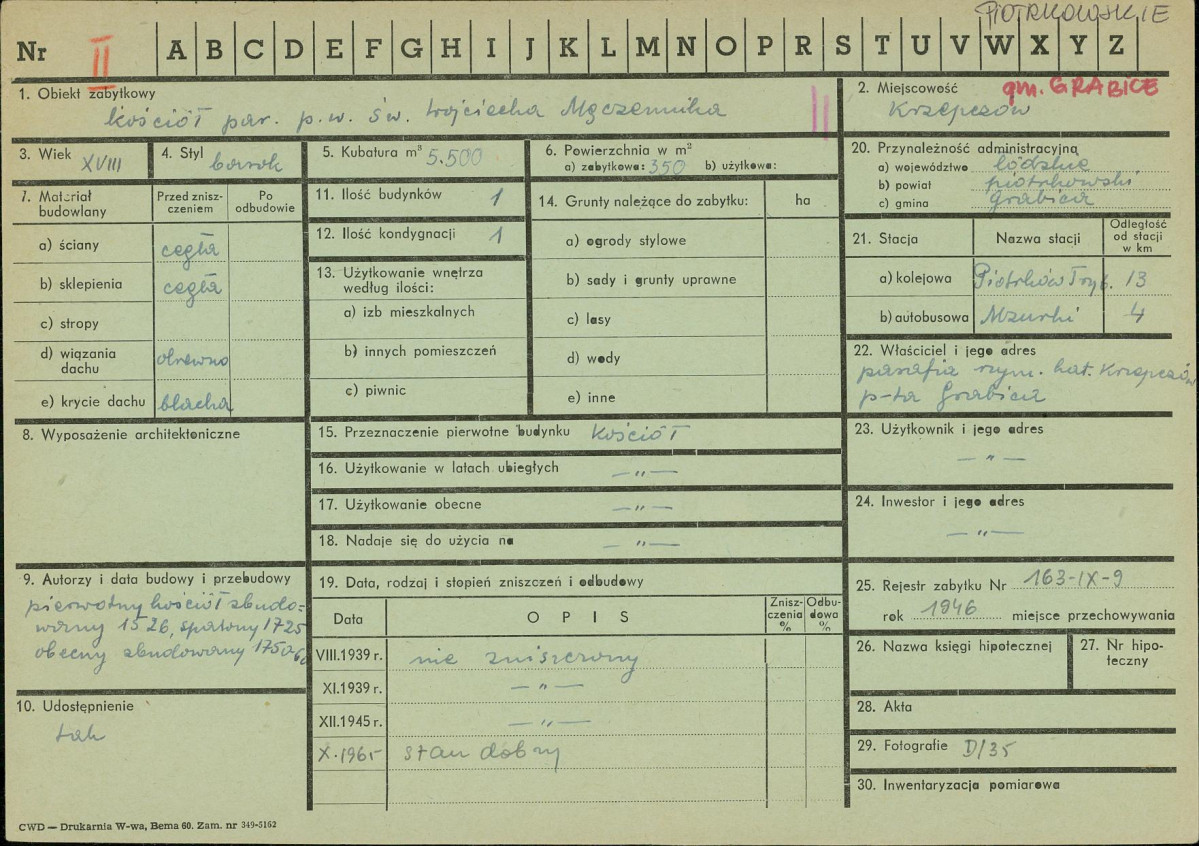 PIOTRKOWSKIE
Nr II A B C D E F G H I J K L M N O P R S T U V W X Y Z
1. Obiekt zabytkowy
kościół par. p.w. św. Wojciecha Męczennika II
2. Miejscowość gm. GRABICE
Krzepczów
3. Wiek XVIII
4. Styl barok
5. Kubatura m³ 5.500
6. Powierzchnia w m²
a) zabytkowa: 350 b) użytkowa:
20. Przynależność administracyjna
a) województwo łódzkie
b) powiat piotrkowski
c) gmina Grabica
7. Materiał budowlany
Przed zniszczeniem
Po odbudowie
a) ściany cegła
b) sklepienia cegła
c) stropy
d) wiązania dachu drewno
e) krycie dachu blacha
11. Ilość budynków 1
12. Ilość kondygnacji 1
13. Użytkowanie wnętrza
według ilości:
a) izb mieszkalnych
b) innych pomieszczeń
c) piwnic
14. Grunty należące do zabytku: ha
a) ogrody stylowe
b) sady i grunty uprawne
c) lasy
d) wody
e) inne
21. Stacja Nazwa stacji Odległość od stacji w km
a) kolejowa Piotrków Tryb. 13
b) autobusowa Mzurki 4
22. Właściciel i jego adres
parafia rzym. kat. Krzepczów
p-ta Grabica
8. Wyposażenie architektoniczne
15. Przeznaczenie pierwotne budynku kościół
16. Użytkowanie w latach ubiegłych — „ —
17. Użytkowanie obecne — „ —
18. Nadaje się do użycia na — „ —
23. Użytkownik i jego adres
— „ —
24. Inwestor i jego adres
— „ —
9. Autorzy i data budowy i przebudowy
pierwotny kościół zbudo-
wany 1526, spalony 1725
obecny zbudowany 1750-60
10. Udostępnienie
tak
19. Data, rodzaj i stopień zniszczeń i odbudowy
Data OPIS Zniszczenia % Odbudowa %
VIII.1939 r. nie zniszczony
XI.1939 r. — „ —
XII.1945 r. — „ —
X.1965 stan dobry
25. Rejestr zabytku Nr 163-IX-9
rok 1946 miejsce przechowywania
26. Nazwa księgi hipotecznej
27. Nr hipo-
teczny
28. Akta
29. Fotografie D/35
30. Inwentaryzacja pomiarowa
CWD — Drukarnia W-wa, Bema 60. Zam. nr 349-5162